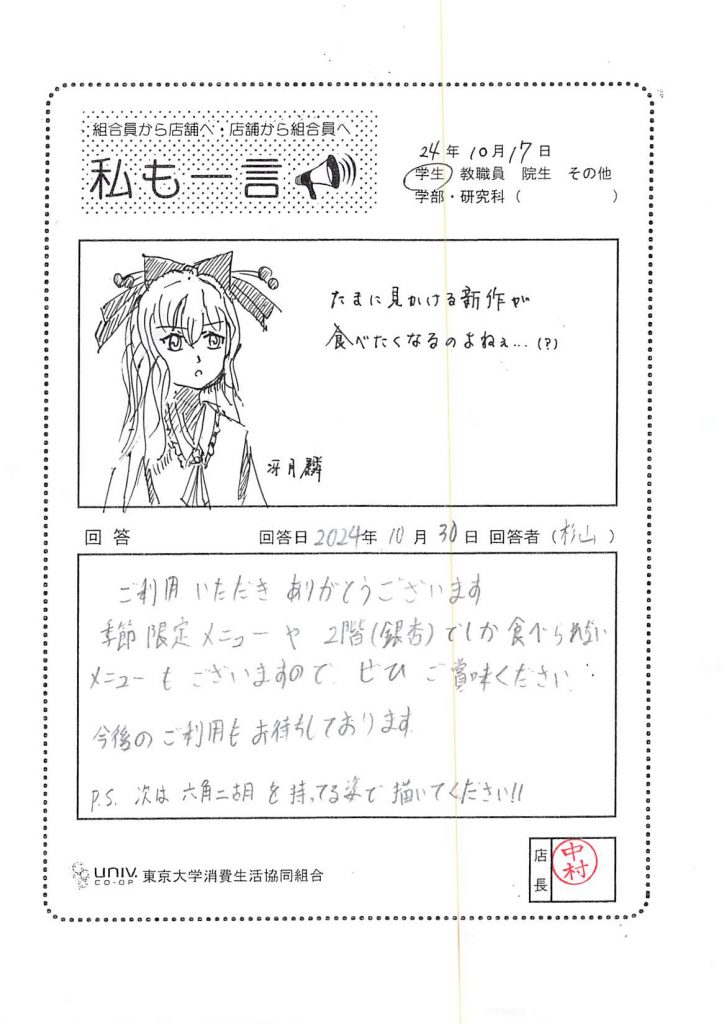 組合員から店舗へ・店舗から組合員へ
私も一言
24年10月17日
学生 教職員 院生 その他
学部・研究科（ ）
たまに見かける新作が
食べたくなるのよねぇ…(?)
冴月麟
回答 回答日2024年10月30日 回答者（杉山）
ご利用いただきありがとうございます
季節限定メニューや 2階(銀杏)でしか食べられない
メニューもございますので、ぜひご賞味ください。
今後のご利用もお待ちしております
P.S. 次は六角二胡を持ってる姿で描いてください!!
UNIV. CO-OP 東京大学消費生活協同組合
店長
中村